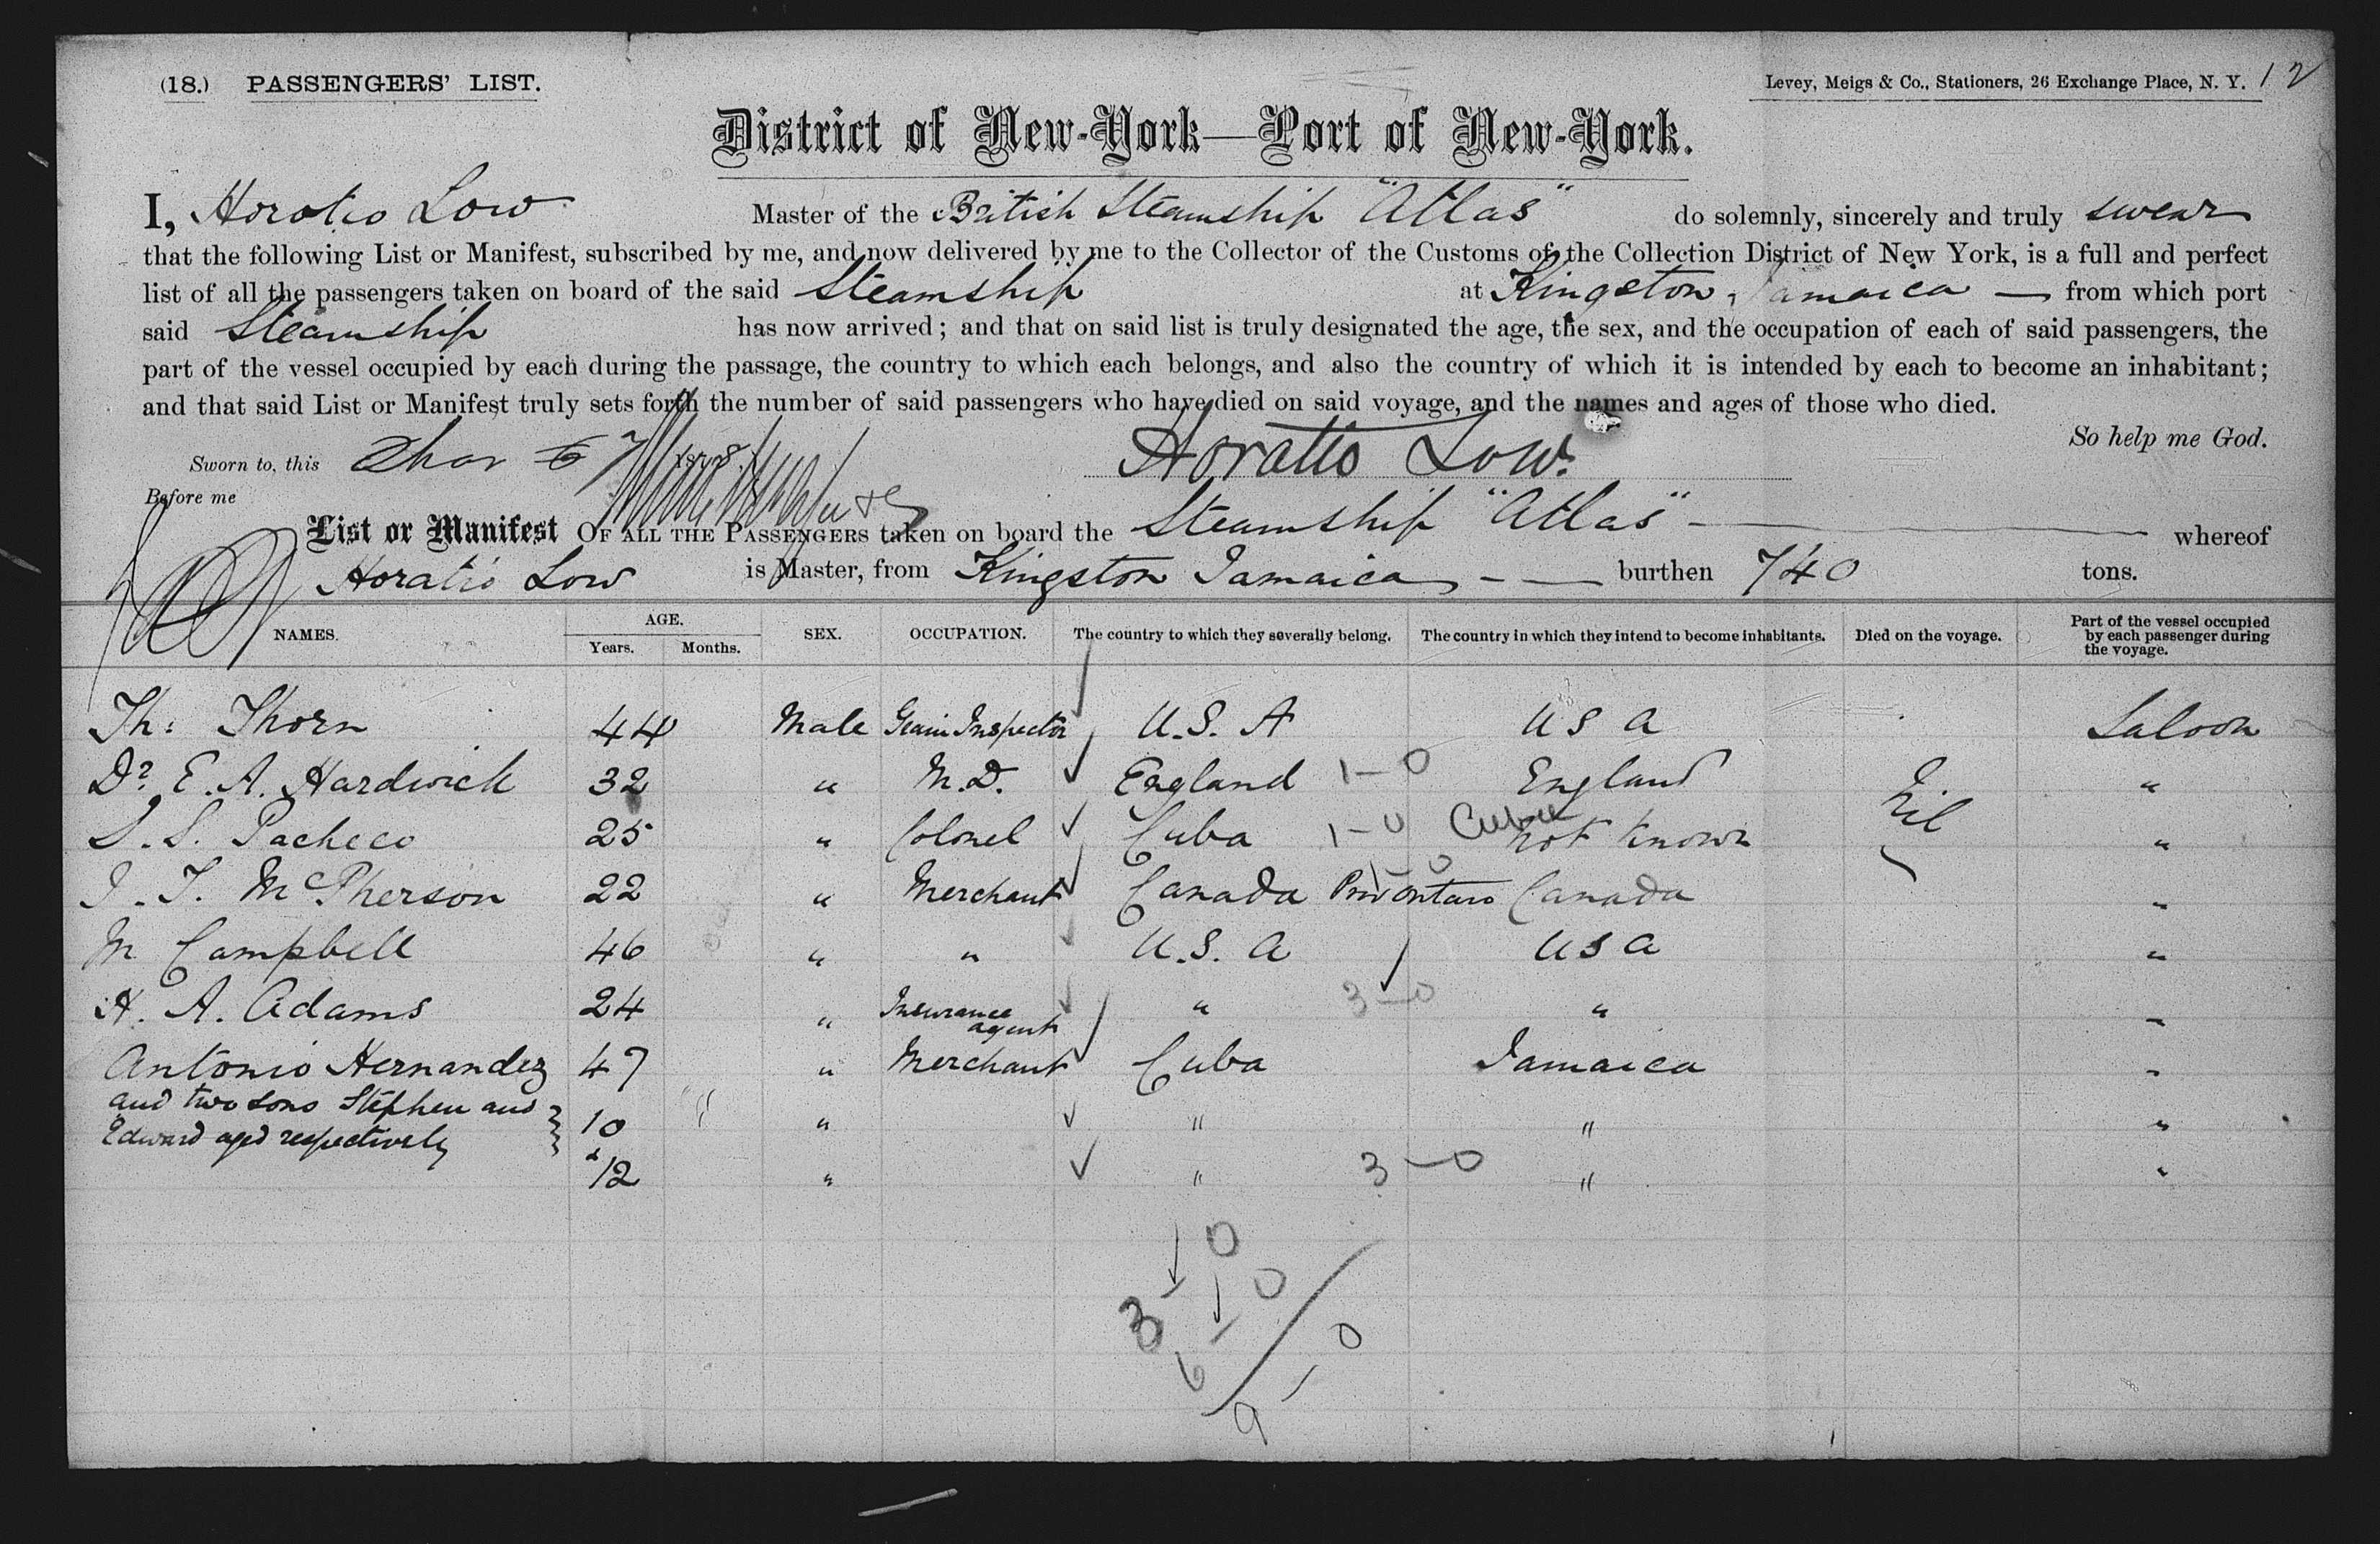 (18.) PASSENGERS' LIST. Levey, Meigs & Co., Stationers, 26 Exchange Place, N. Y. 12
District of New-York—Port of New-York.
I, Horatio Low Master of the British Steamship "Atlas" do solemnly, sincerely and truly swear
that the following List or Manifest, subscribed by me, and now delivered by me to the Collector of the Customs of the Collection District of New York, is a full and perfect
list of all the passengers taken on board of the said Steamship at Kingston, Jamaica — from which port
said Steamship has now arrived; and that on said list is truly designated the age, the sex, and the occupation of each of said passengers, the
part of the vessel occupied by each during the passage, the country to which each belongs, and also the country of which it is intended by each to become an inhabitant;
and that said List or Manifest truly sets forth the number of said passengers who have died on said voyage, and the names and ages of those who died.
So help me God.
Sworn to, this Mar 7 1878. Horatio Low.
Before me
List or Manifest OF ALL THE PASSENGERS taken on board the Steamship "Atlas" — whereof
Horatio Low is Master, from Kingston Jamaica, — burthen 740 tons.
NAMES. AGE. Years. Months. SEX. OCCUPATION. The country to which they severally belong. The country in which they intend to become inhabitants. Died on the voyage. Part of the vessel occupied by each passenger during the voyage.
Th: Thorn 44 Male Grain Inspector U.S. A U S A Saloon
Dr. E. A. Hardwick 32 " M.D. England 1-0 England Nil "
S. S. Pacheco 25 " Colonel Cuba 1-0 Cuba not known "
J. T. McPherson 22 " Merchant Canada Prov Ontario 1-0 Canada "
M Campbell 46 " " U.S. A U S A "
H. A. Adams 24 " Insurance agent " 3-0 " "
Antonio Hernandez 47 " Merchant Cuba Jamaica "
and two sons Stephen and
Edward aged respectively } 10 " " " "
& 12 " " 3-0 " "
3-0
6-0
9-0